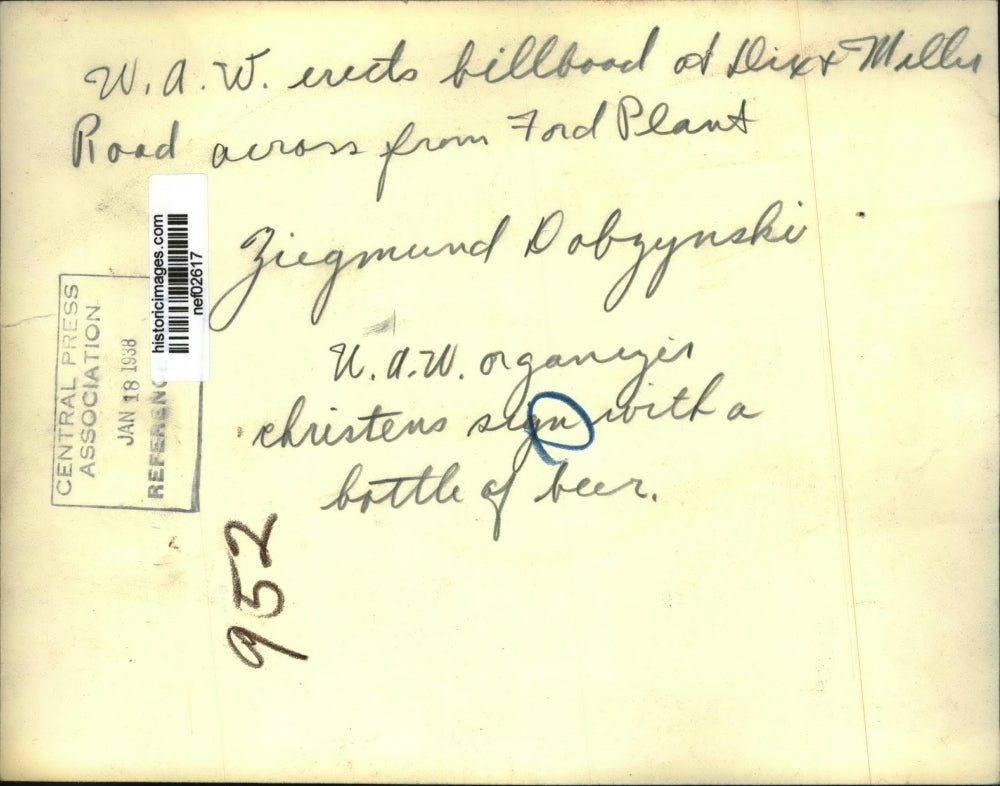 U.A.W. erects billboad at Dix & Miller
Road across from Ford Plant
Ziegmund Dobzynski
U.A.W. organizer
christens sign with a
bottle of beer.
historicimages.com
nef02617
CENTRAL PRESS
ASSOCIATION
JAN 18 1938
REFERENC
952